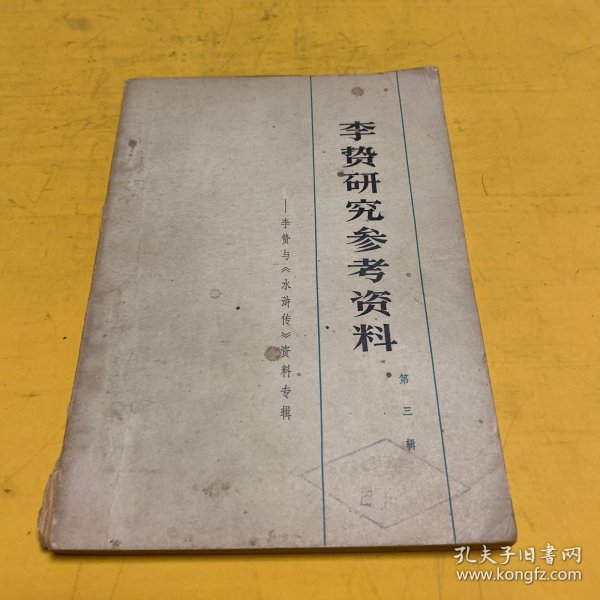 李贽研究参考资料
第三辑
——李贽与《水浒传》资料专辑
孔夫子旧书网
www.kongfz.com